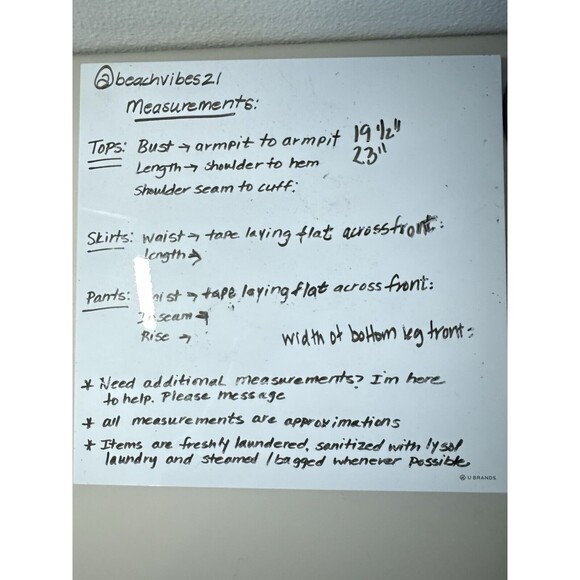 @beachvibes21
Measurements:
Tops: Bust → armpit to armpit 19 1/2"
Length → shoulder to hem 23"
Shoulder seam to cuff:
Skirts: waist → tape laying flat across front:
length →
Pants: ist → tape laying flat across front:
Inseam →
Rise → width of bottom leg front:
* Need additional measurements? I'm here
to help. Please message
* all measurements are approximations
* Items are freshly laundered, sanitized with lysol
laundry and steamed / bagged whenever possible
U BRANDS